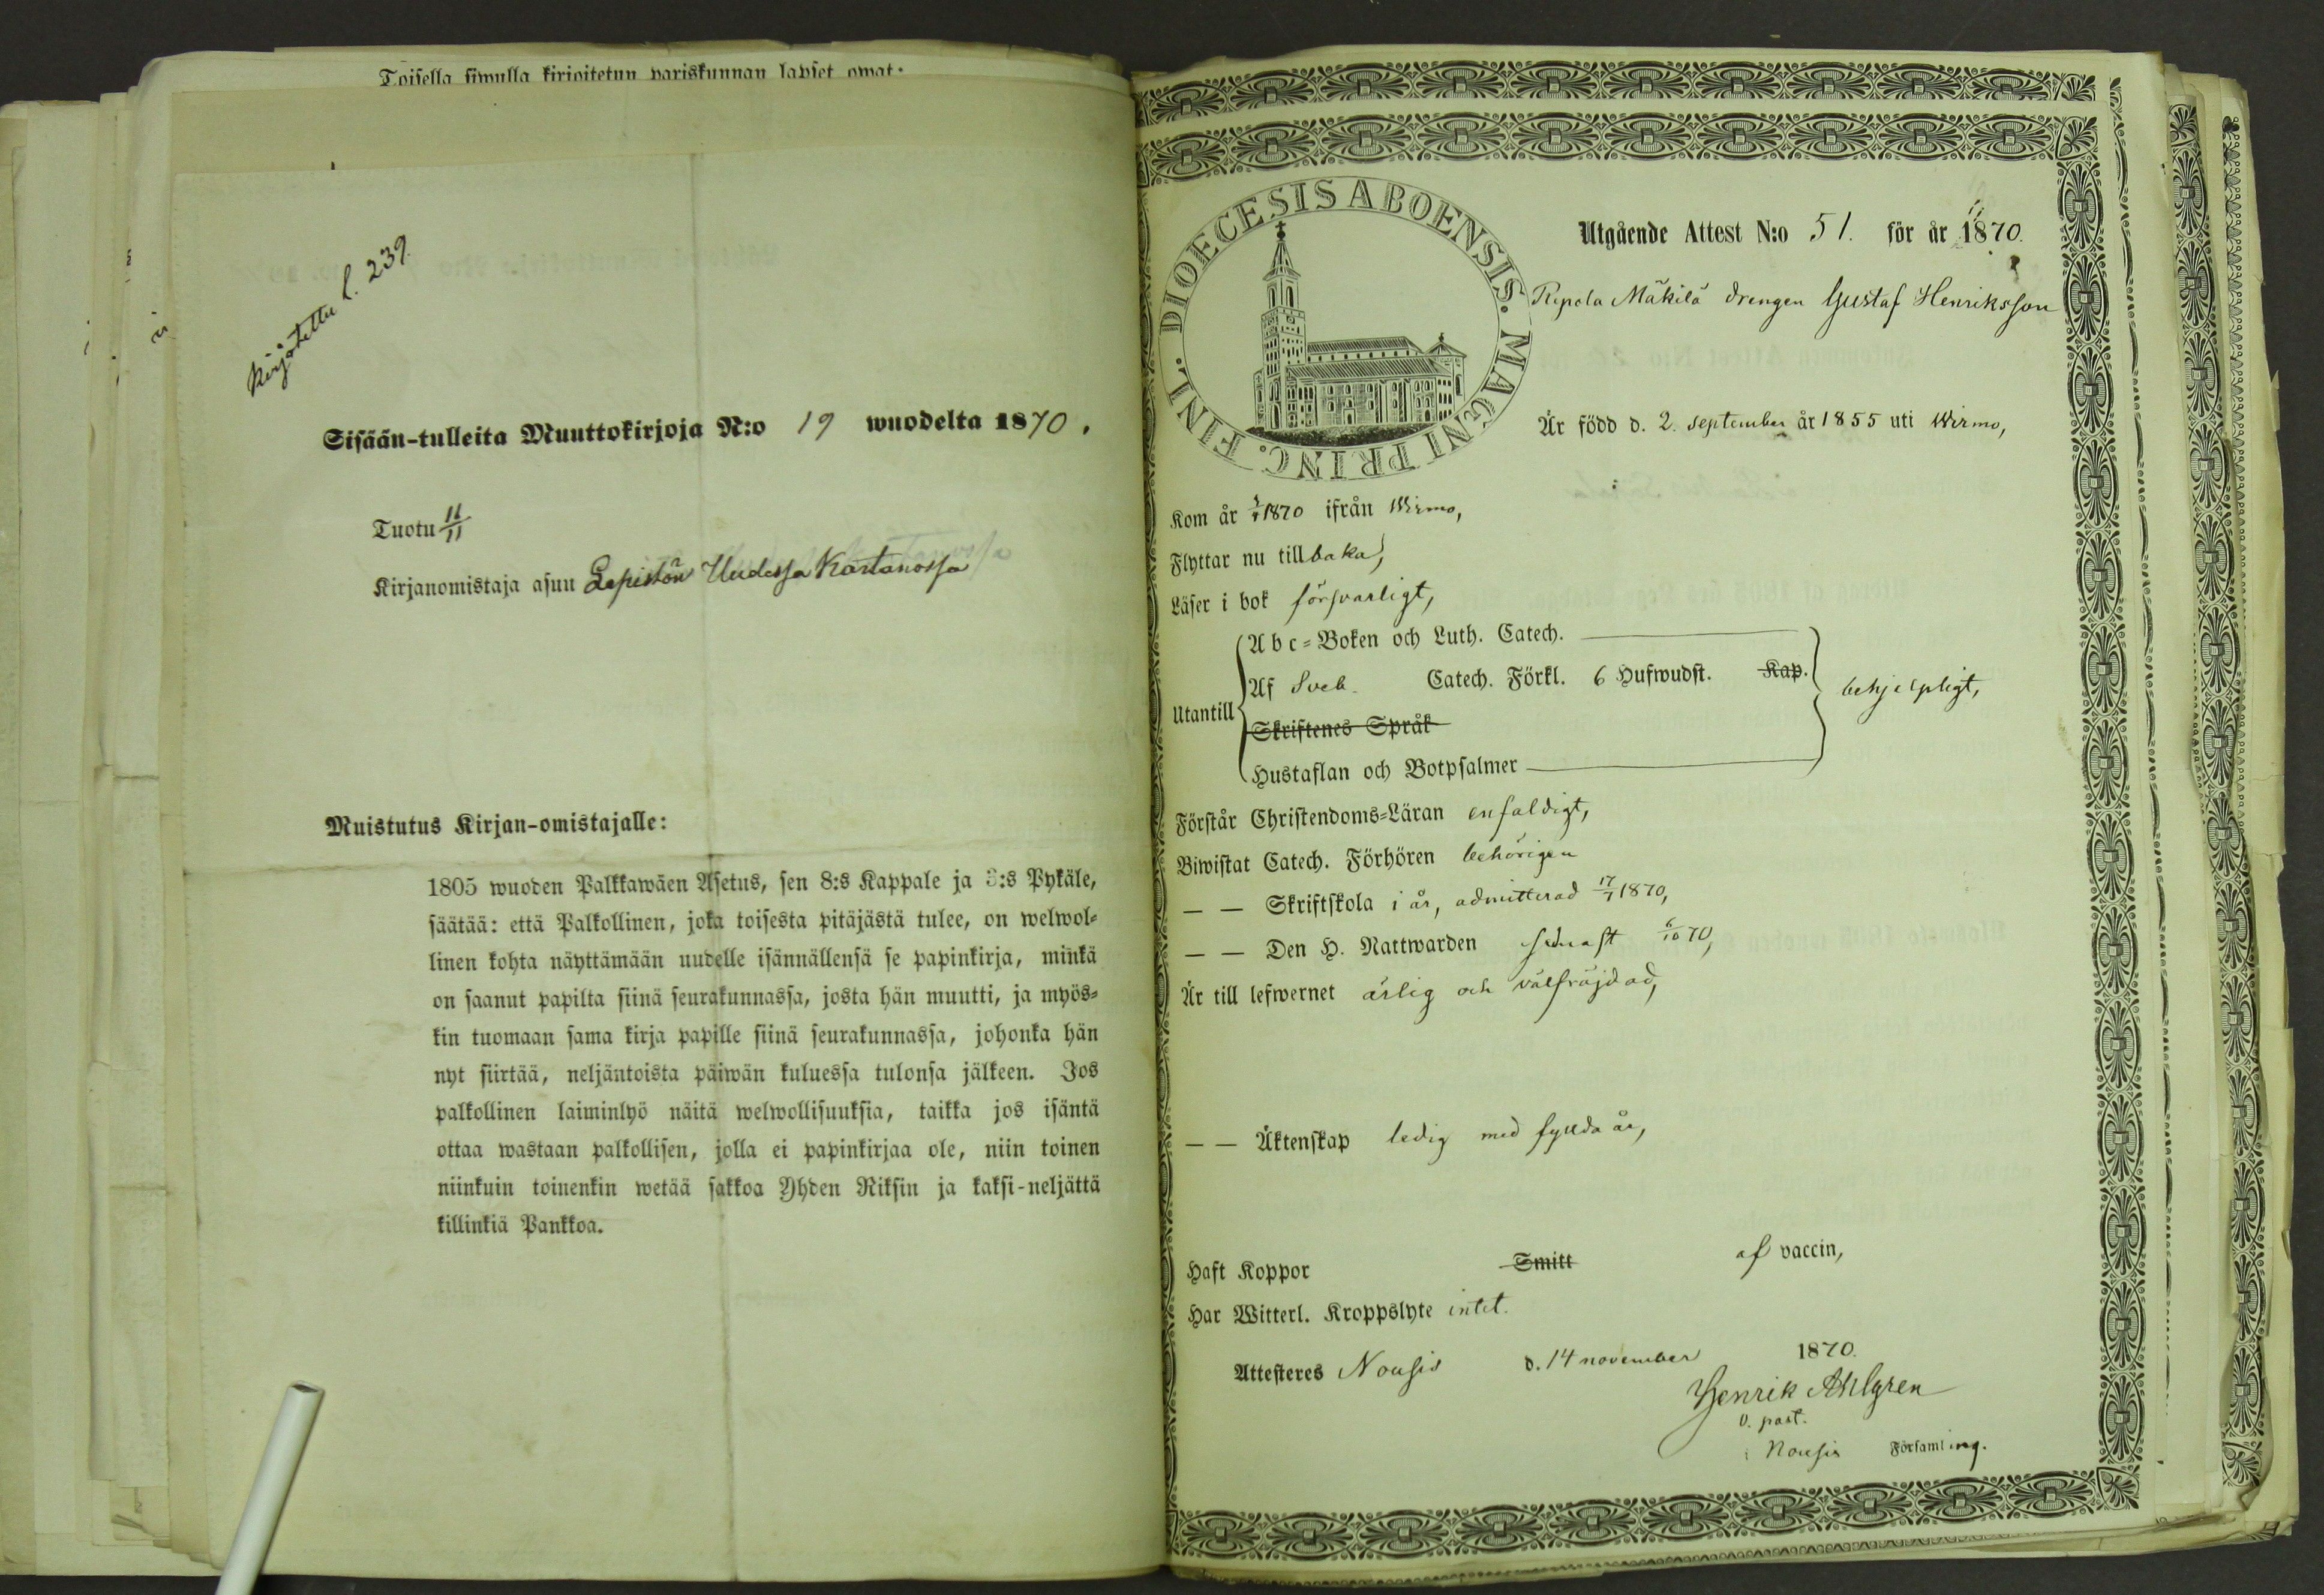 Toisella siwulla kirjoitetun pariskunnan lapset owat:
Kirjotettu l. 239.
Sisään-tulleita Muuttokirjoja N:o 19 wuodelta 1870.
Tuotu 11/11
Kirjanomistaja asuu Lepistön Uudessa Kartanossa
Muistutus Kirjan-omistajalle:
1805 wuoden Palkkawäen Asetus, sen 8:s Kappale ja 3:s Pykäle,
säätää: että Palkollinen, joka toisesta pitäjästä tulee, on welwol-
linen kohta näyttämään uudelle isännällensä se papinkirja, minkä
on saanut papilta siinä seurakunnassa, josta hän muutti, ja myös-
kin tuomaan sama kirja papille siinä seurakunnassa, johonka hän
nyt siirtää, neljäntoista päiwän kuluessa tulonsa jälkeen. Jos
palkollinen laiminlyö näitä welwollisuuksia, taikka jos isäntä
ottaa wastaan palkollisen, jolla ei papinkirjaa ole, niin toinen
niinkuin toinenkin wetää sakkoa Yhden Riksin ja kaksi-neljättä
killinkiä Pankkoa.
DIOECESIS ABOENSIS. MAGNI PRINC. FINL.
Utgående Attest N:o 51. för år 1870.
Repola Mäkilä drengen Gustaf Henriksson
Är född d. 2. september år 1855 uti Wirmo,
Kom år 1870 ifrån Wirmo,
Flyttar nu tillbaka,
Läser i bok försvarligt,
Utantill
Abc-Boken och Luth. Catech.
Af Sveb. Catech. Förkl. 6 Hufwudst. Kap.
behjelpligt,
Skriftenes Språk
Hustaflan och Botpsalmer
Förstår Christendoms-Läran enfaldigt,
Biwistat Catech. Förhören behörigen
— — Skriftskola i år, admitterad 17/7 1870,
— — Den H. Nattwarden senast 6/10 70,
Är till lefwernet ärlig och välfräjdad,
— — Äktenskap ledig med fyllda år,
Haft Koppor Smitt af vaccin,
Har Witterl. Kroppslyte intet.
Attesteres Nousis d. 14 november 1870.
Henrik Ahlgren
v. past.
i Nousis Församling.